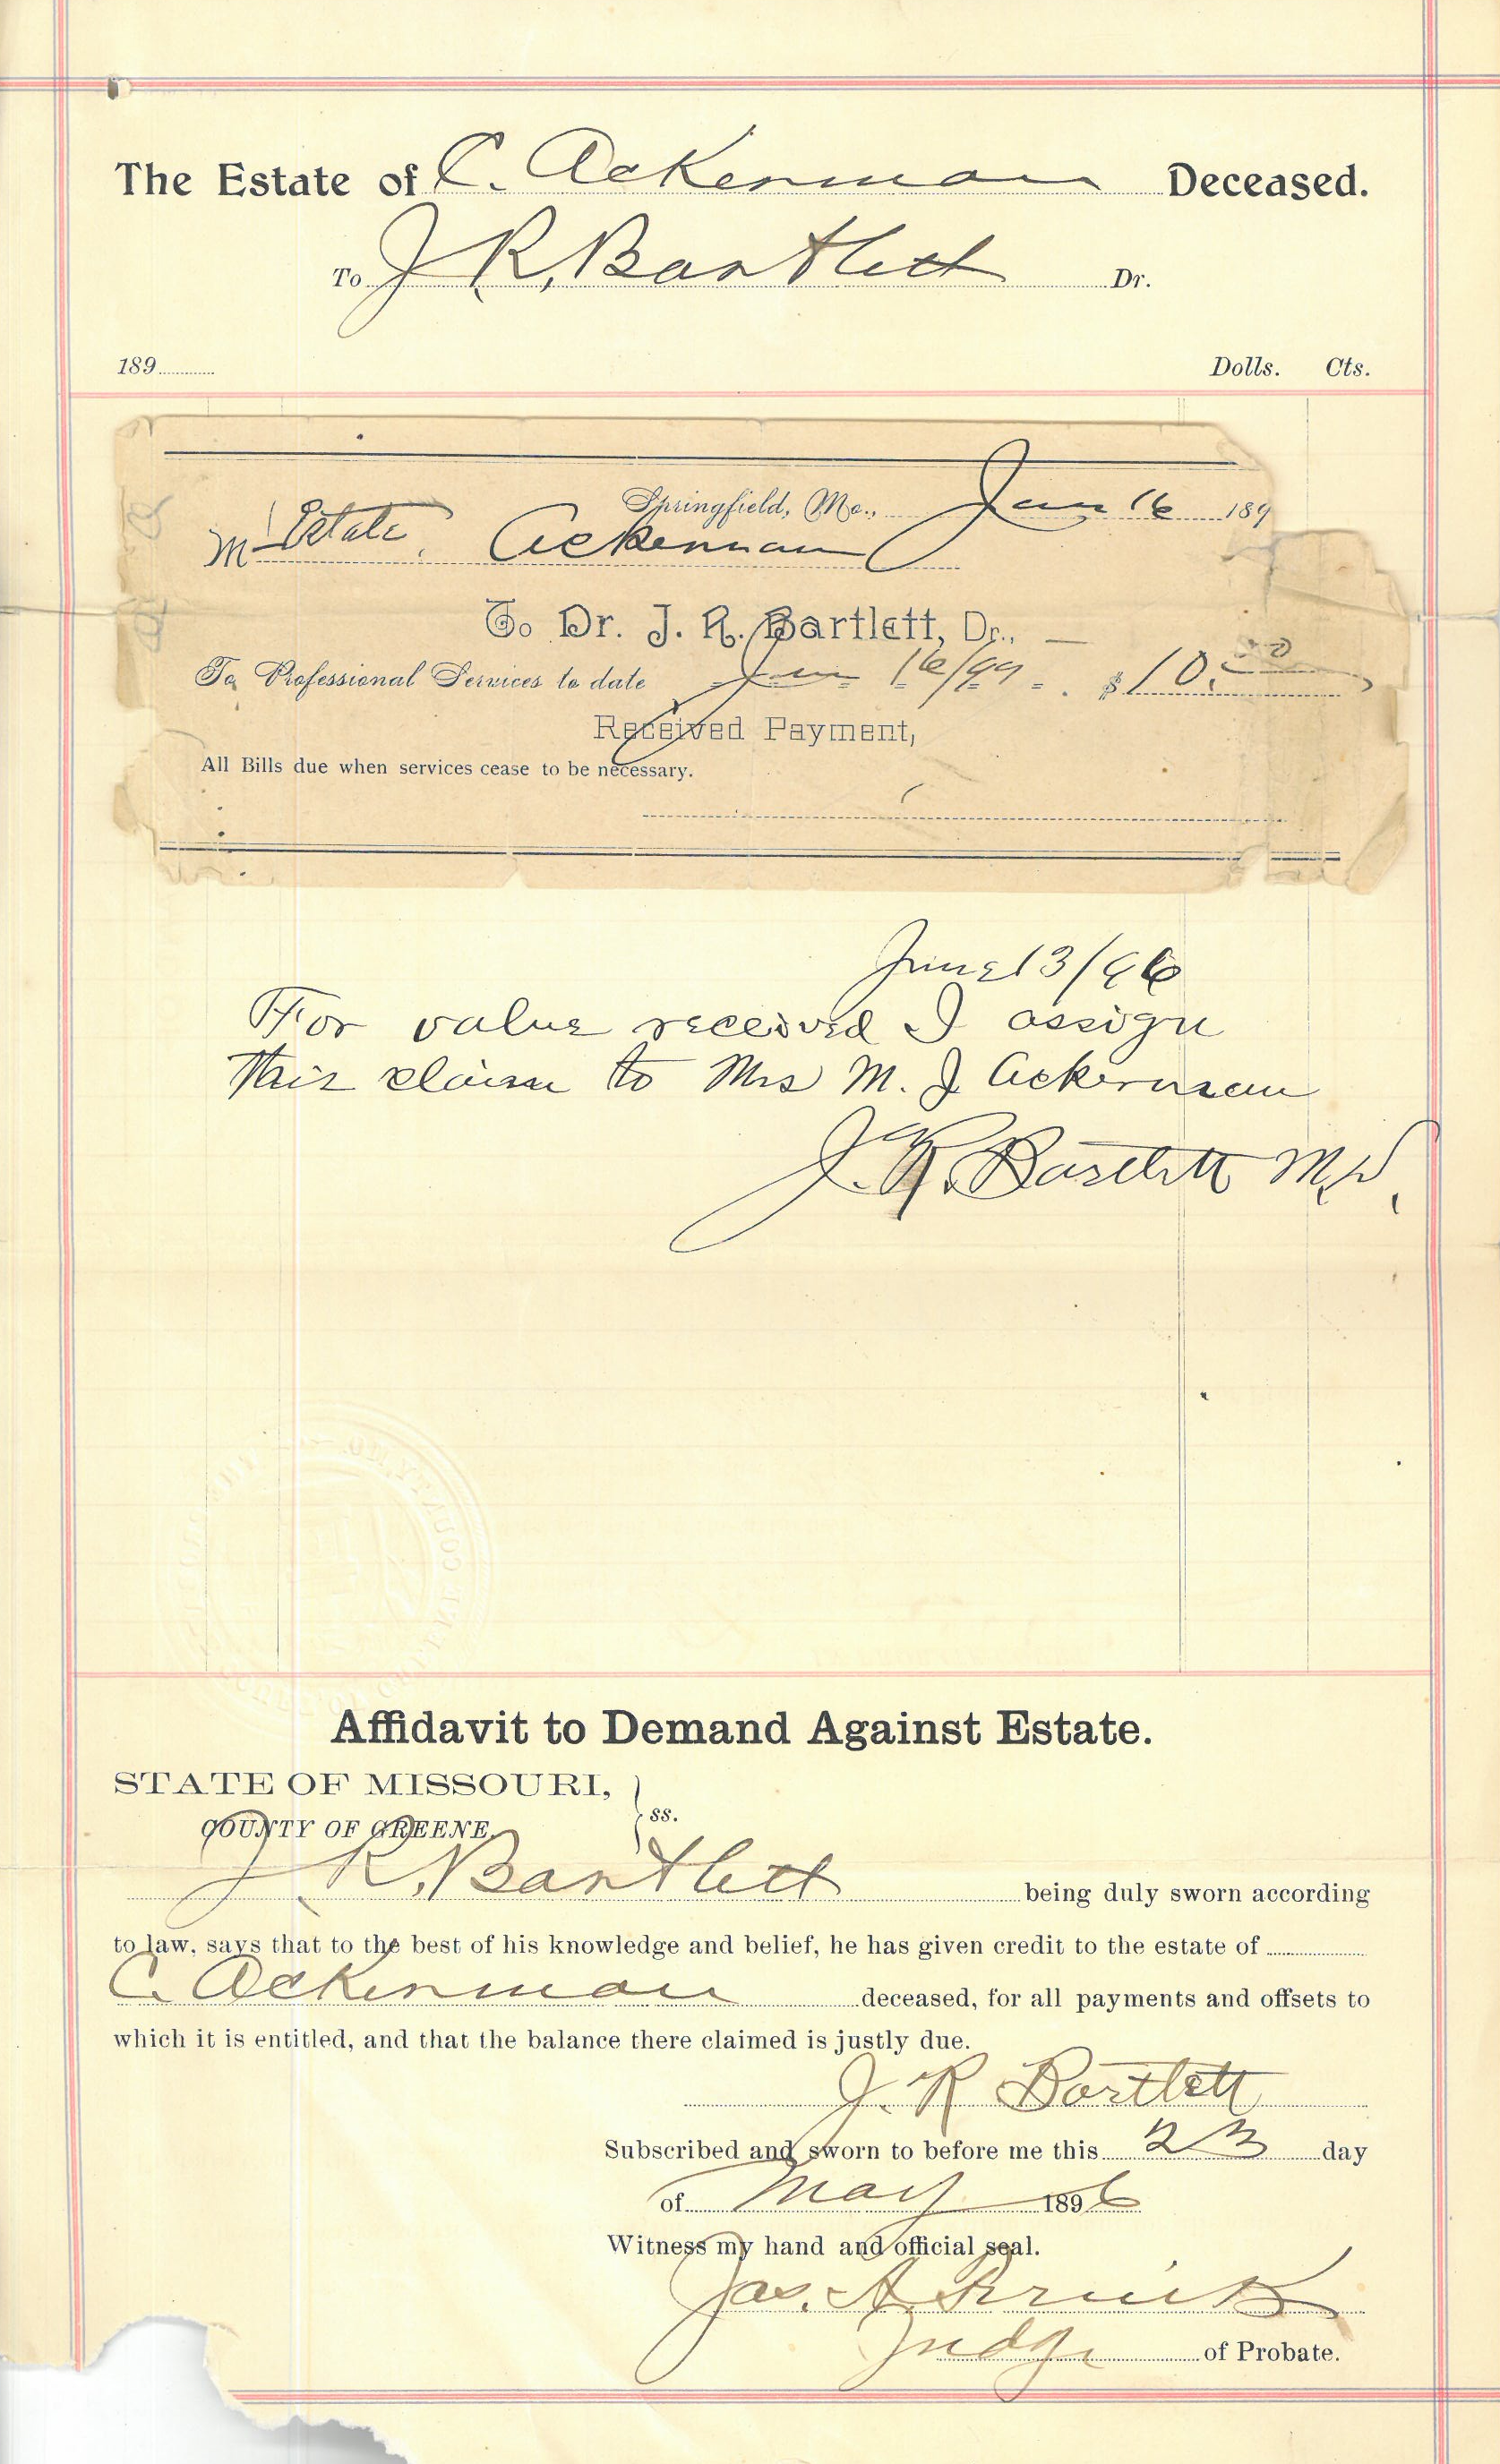 The Estate of C. Ackerman Deceased.
To J. R. Bartlett Dr.
189 Dolls. Cts.
Springfield, Mo., Jan 16 189
M Estate. Ackerman
To Dr. J. R. Bartlett, Dr.,
To Professional Services to date Jan 16/ $10.00
Received Payment,
All Bills due when services cease to be necessary.
June 13/96
For value received I assign
this claim to Mrs M. J Ackerman
J. R. Bartlett M.D.
Affidavit to Demand Against Estate.
STATE OF MISSOURI,
COUNTY OF GREENE. ss.
J. R. Bartlett being duly sworn according
to law, says that to the best of his knowledge and belief, he has given credit to the estate of
C. Ackerman deceased, for all payments and offsets to
which it is entitled, and that the balance there claimed is justly due.
J. R Bartlett
Subscribed and sworn to before me this 23 day
of May 1896
Witness my hand and official seal.
Jas. A.
Judge of Probate.